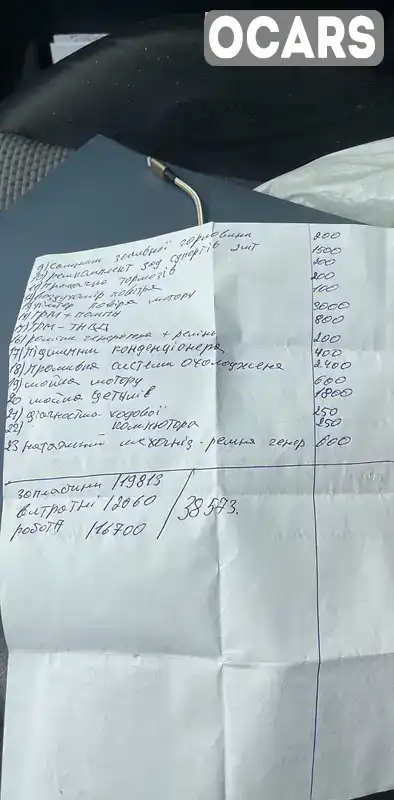 OCARS
9) Сальник заливної горловини 200
10) ремкомплект зад супортів 2шт 1500
11) Прокачка тормозів 200
12) повітря 200
13) фільтр повітря мотору 100
14) ГРМ + помпа 3000
15) ГРМ - ТНВД 800
16) генератора + ремінь 200
17) Підшипник конденціонера 400
18) Промивка системи охолодженя 2400
19) мойка мотору 600
20 мойка деталів 1800
21) діагностика ходової 250
22) компютора 250
23 натяжний механіз. ремня генер 600
запластини /19813
витратні /2060
38573.
робота /16700